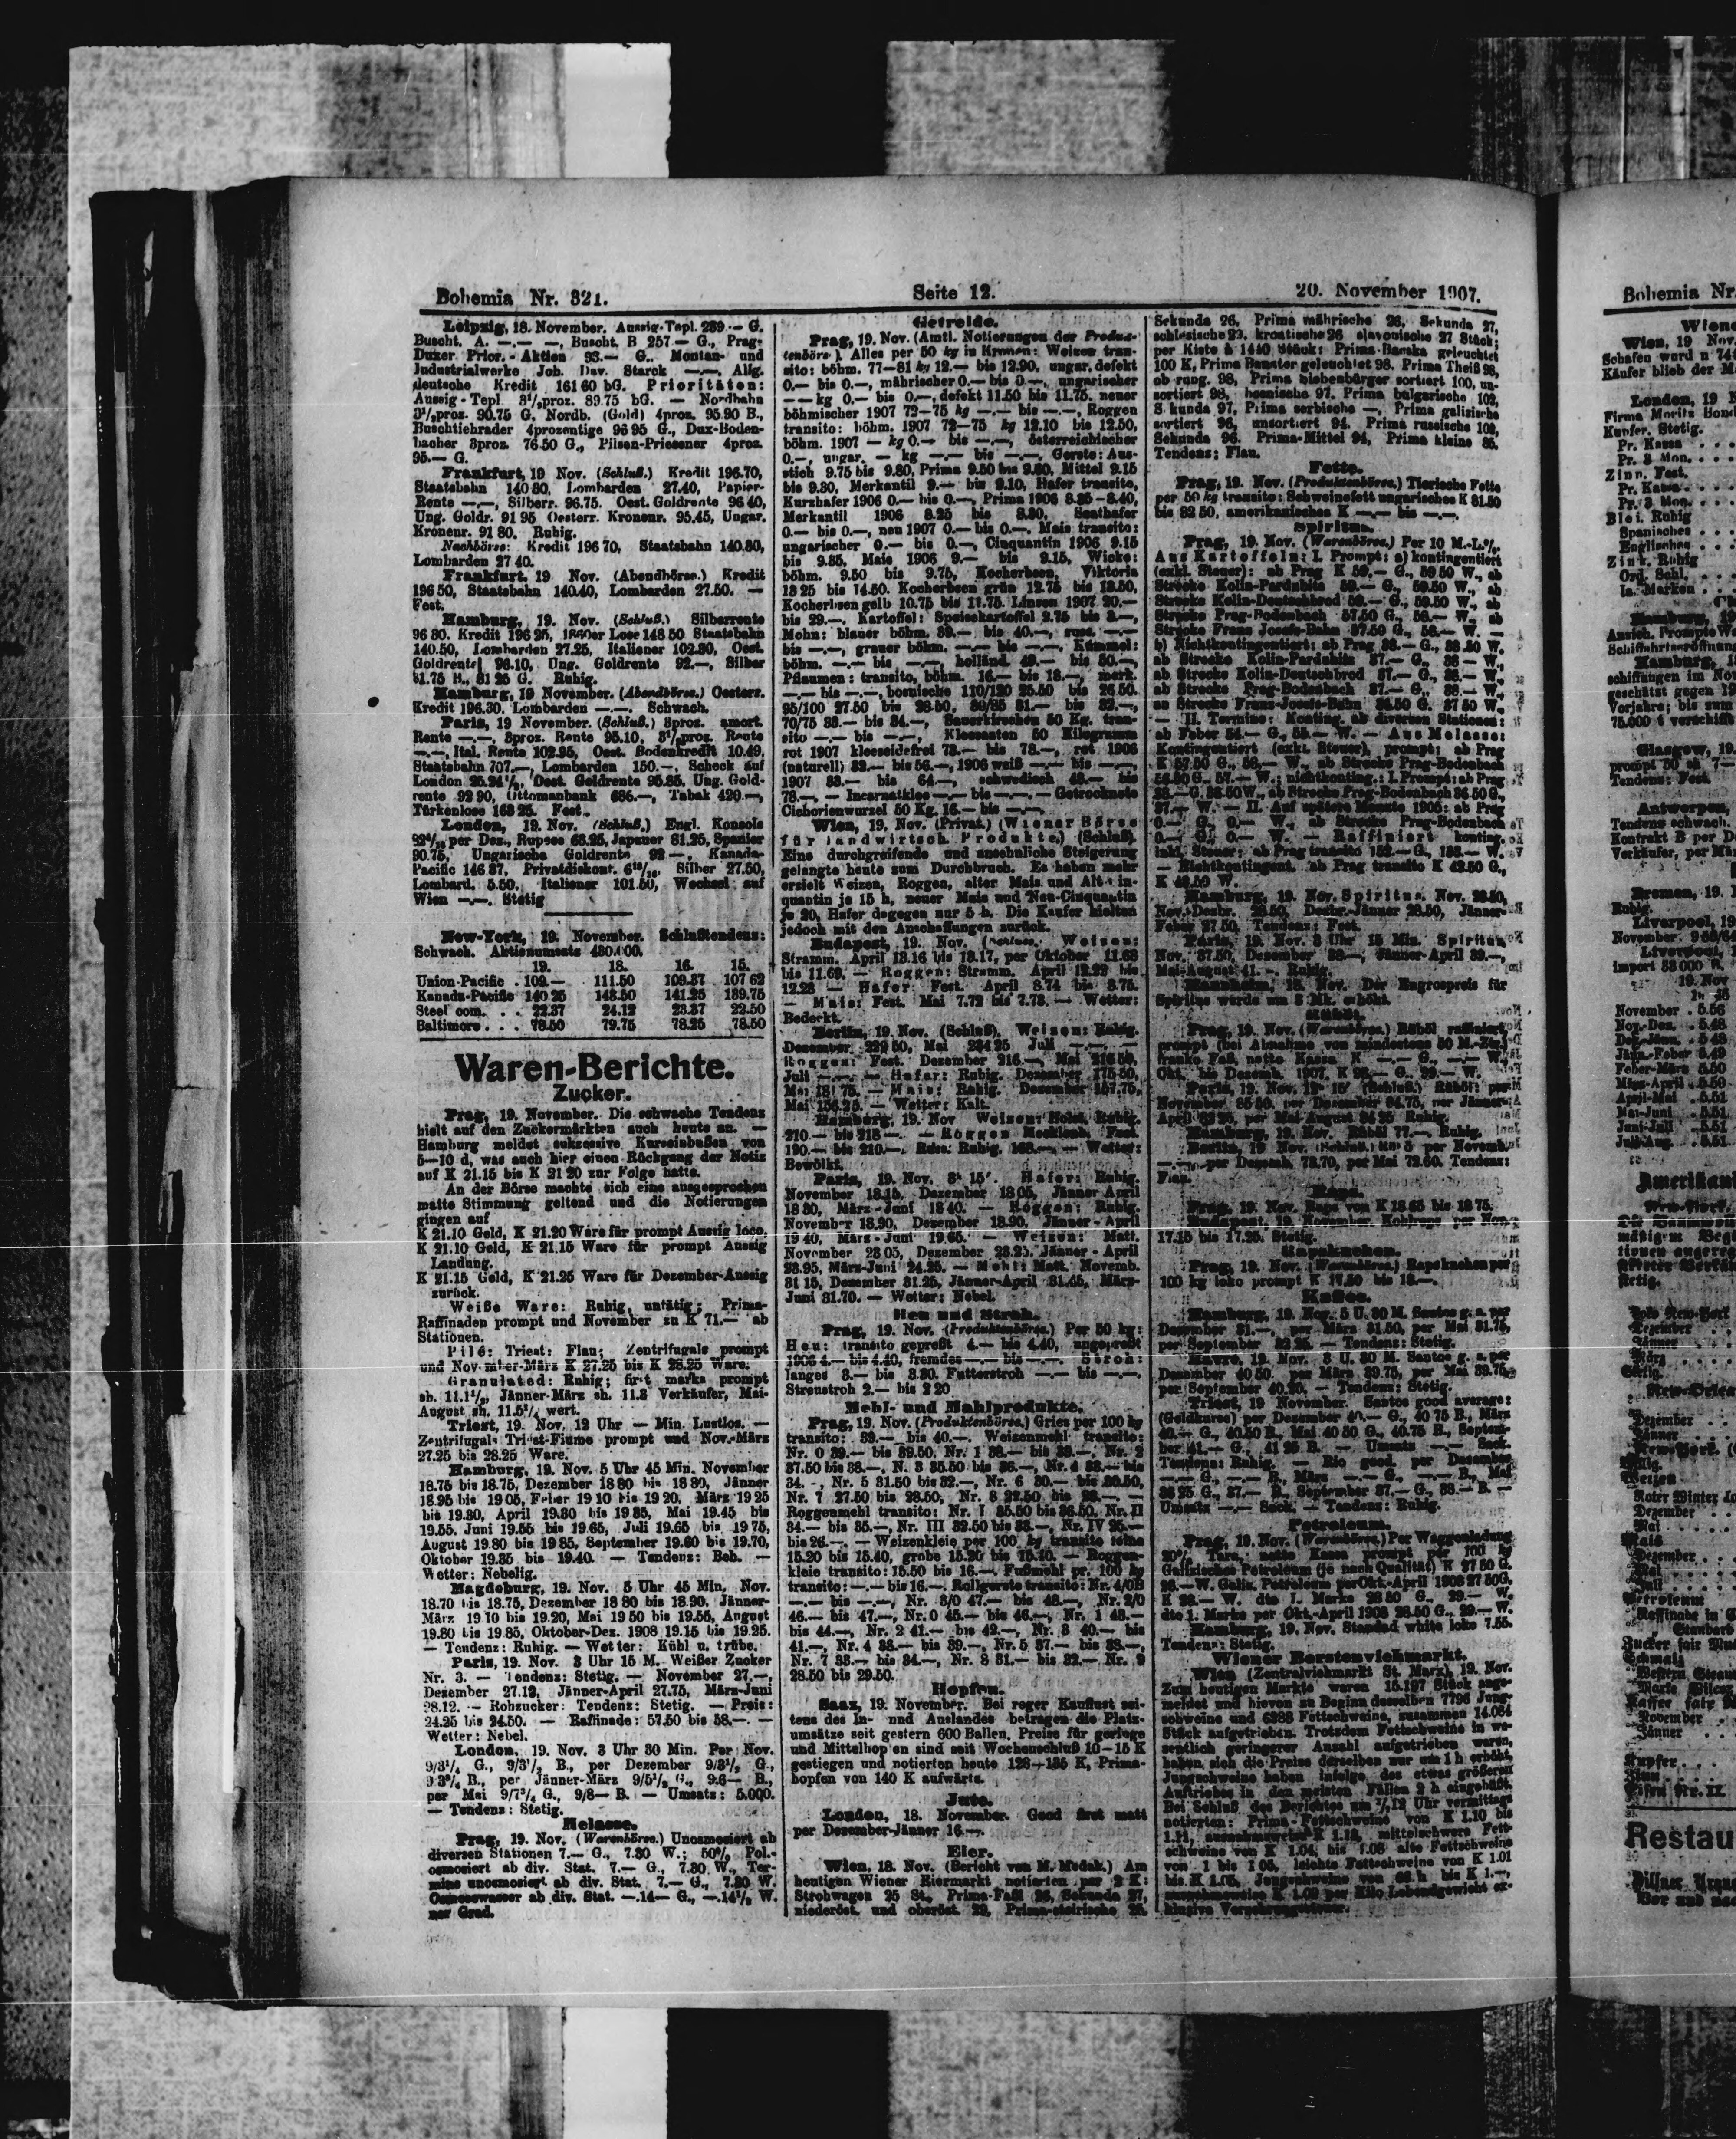 Bohemia Nr. 321.
Seite 12.
20. November 1907.
Leipzig, 18. November. Aussig-Tepl. 239·— G.
Buscht. A. —.— —, Buscht. B 257— G., Prag-
Duxer Prior.-Aktien 93.— G.. Montan- und
Industrialwerke Joh. Dav. Starck —.—, Allg.
deutsche Kredit 161 60 bG. Prioritäten:
Aussig-Tepl. 3½proz. 89.75 bG. — Nordbahn
3½proz. 90.75 G, Nordb. (Gold) 4proz. 95.90 B.,
Buschtiehrader 4prozentige 96 95 G., Dux-Boden-
bacher 3proz. 76.50 G., Pilsen-Priesener 4proz.
95.— G.
Frankfurt, 19 Nov. (Schluß.) Kredit 196.70,
Staatsbahn 140 80, Lombarden 27.40, Papier-
Rente —.—, Silberr. 96.75. Oest. Goldrente 96 40,
Ung. Goldr. 91 95 Oesterr. Kronenr. 95.45, Ungar.
Kronenr. 91 80. Ruhig.
Nachbörse: Kredit 196 70, Staatsbahn 140.80,
Lombarden 27 40.
Frankfurt, 19 Nov. (Abendbörse.) Kredit
196 50, Staatsbahn 140.40, Lombarden 27.50. —
Fest.
Hamburg, 19. Nov. (Schluß.) Silberrente
96 80. Kredit 196 25, 1860er Lose 148 50 Staatsbahn
140.50, Lombarden 27.25, Italiener 102.30, Oest.
Goldrente 96.10, Ung. Goldrente 92.—, Silber
81.75 B., 81 25 G. Ruhig.
Hamburg, 19 November. (Abendbörse.) Oesterr.
Kredit 196.30. Lombarden —.—. Schwach.
Paris, 19 November. (Schluß.) 3proz. amort.
Rente —.—, 3proz. Rente 95.10, 3½proz. Rente
—.—, Ital. Rente 102.95, Oest. Bodenkredit 10.49,
Staatsbahn 707.—, Lombarden 150.—, Scheck auf
London 25.24½, Oest. Goldrente 95.85, Ung. Gold-
rente 92 90, Ottomanbank 686.—, Tabak 420.—,
Türkenlose 163 25. Fest.
London, 19. Nov. (Schluß.) Engl. Konsols
per Dez., Rupees 63.25, Japaner 81.25, Spanier
90.75, Ungarische Goldrente 92 —, Kanada-
Pacific 146 37, Privatdiskont. Silber 27.50,
Lombard. 5.50. Italiener 101.50, Wechsel auf
Wien —.—. Stetig
New-York, 19. November. Schlußtendenz:
Schwach. Aktienumsatz 480.000.
19. 18. 16. 15.
Union-Pacific . 109.— 111.50 109.37 107 62
Kanada-Pacific 140 25 148.50 141.25 139.75
Steel com. . . 22.37 24.12 23.37 22.50
Baltimore . . . 78.50 79.75 78.25 78.50
Waren-Berichte.
Zucker.
Prag, 19. November. Die schwache Tendenz
hielt auf den Zuckermärkten auch heute an. —
Hamburg meldet sukzessive Kurseinbußen von
5—10 d, was auch hier einen Rückgang der Notiz
auf K 21.15 bis K 21 20 zur Folge hatte.
An der Börse machte sich eine ausgesprochen
matte Stimmung geltend und die Notierungen
gingen auf
K 21.10 Geld, K 21.20 Ware für prompt Aussig loco.
K 21.10 Geld, K 21.15 Ware für prompt Aussig
Landung.
K 21.15 Geld, K 21.25 Ware für Dezember-Aussig
zurück.
Weiße Ware: Ruhig, untätig; Prima-
Raffinaden prompt und November zu K 71.— ab
Stationen.
Pilé: Triest: Flau; Zentrifugale prompt
und November-März K 27.25 bis K 28.25 Ware.
Granulated: Ruhig; first marks prompt
sh. 11.1½, Jänner-März sh. 11.3 Verkäufer, Mai-
August sh. wert.
Triest, 19. Nov. 12 Uhr — Min. Lustlos. —
Zentrifugale Triest-Fiume prompt und Nov.-März
27.25 bis 28.25 Ware.
Hamburg, 19. Nov. 5 Uhr 45 Min. November
18.75 bis 18.75, Dezember 18 80 bis 18 80, Jänner
18.95 bis 19 05, Feber 19 10 bis 19 20, März 19 25
bis 19.30, April 19.30 bis 19 35, Mai 19.45 bis
19.55. Juni 19.55 bis 19 65, Juli 19.65 bis 19 75,
August 19.80 bis 19 85, September 19.60 bis 19.70,
Oktober 19.35 bis 19.40. — Tendenz: Beh. —
Wetter: Nebelig.
Magdeburg, 19. Nov. 5 Uhr 45 Min. Nov.
18.70 bis 18.75, Dezember 18 80 bis 18.90, Jänner-
März 19 10 bis 19.20, Mai 19 50 bis 19.55, August
19.80 bis 19 85, Oktober-Dez. 1908 19.15 bis 19.25.
— Tendenz: Ruhig. — Wetter: Kühl u. trübe.
Paris, 19. Nov. 3 Uhr 15 M. Weißer Zucker
Nr. 3. — Tendenz: Stetig. — November 27.—,
Dezember 27.12, Jänner-April 27.75, März-Juni
28.12. — Rohzucker: Tendenz: Stetig. — Preis:
24.25 bis 24.50. — Raffinade: 57.50 bis 58.—. —
Wetter: Nebel.
London, 19. Nov. 3 Uhr 30 Min. Per Nov.
9/3¼ G., 9/3½ B., per Dezember 9/3½ G.,
9 3¾ B., per Jänner-März 9/5½ G., 9.6— B.,
per Mai 9/7¾ G., 9/8— B. — Umsatz: 5.000.
— Tendenz: Stetig.
Melasse.
Prag, 19. Nov. (Warenbörse.) Unosmosiert ab
diversen Stationen 7.— G., 7.30 W.; 50% Pol.-
osmosiert ab div. Stat. 7.— G., 7.30 W., Ter-
mine unosmosiert ab div. Stat. 7.— G., 7.30 W.
Osmosewasser ab div. Stat. —.14— G., —.14½ W.
per Grad.
Getreide.
Prag, 19. Nov. (Amtl. Notierungen der Produk-
tenbörse.) Alles per 50 kg in Kronen: Weizen tran-
sito: böhm. 77—81 kg 12.— bis 12.90, ungar. defekt
0.— bis 0.—, mährischer 0.— bis 0.—, ungarischer
— — kg 0.— bis 0.—, defekt 11.50 bis 11.75, neuer
böhmischer 1907 72—75 kg —.— bis —.—, Roggen
transito: böhm. 1907 72—75 kg 12.10 bis 12.50,
böhm. 1907 — kg 0.— bis —.—, österreichischer
0.—, ungar. — kg —.— bis —.—, Gerste: Aus-
stich 9.75 bis 9.80, Prima 9.50 bis 9.60, Mittel 9.15
bis 9.30, Merkantil 9.— bis 9.10, Hafer transito,
Kurzhafer 1906 0.— bis 0.—, Prima 1906 8.35—8.40,
Merkantil 1906 8.25 bis 8.30, Saathafer
0.— bis 0.—, neu 1907 0.— bis 0.—, Mais transito:
ungarischer 0.— bis 0.—, Cinquantin 1906 9.15
bis 9.35, Mais 1906 9.— bis 9.15, Wicke:
böhm. 9.50 bis 9.75, Kocherbsen, Viktoria
13 25 bis 14.50. Kocherbsen grün 12.75 bis 13.50,
Kocherbsen gelb 10.75 bis 11.75. Linsen 1907 20.—
bis 29.—. Kartoffel: Speisekartoffel 2.75 bis 3.—,
Mohn: blauer böhm. 39.— bis 40.—, russ. —.—
bis —.—, grauer böhm. —.— bis —.—, Kümmel:
böhm. —.— bis —.—, holländ. 49.— bis 50.—,
Pflaumen: transito, böhm. 16.— bis 18.—, merk.
—.— bis —.—, bosnische 110/120 25.50 bis 26 50.
95/100 27.50 bis 28.50, 80/85 31.— bis 32.—,
70/75 33.— bis 34.—, Sauerkirschen 50 Kg. tran-
sito —.— bis —.—, Kleesaaten 50 Kilogramm
rot 1907 kleeseidefrei 73.— bis 78.—, rot 1906
(naturell) 32.— bis 56.—, 1906 weiß —.— bis —.—,
1907 33.— bis 64.—, schwedisch 48.— bis
78.—, — Incarnatklee —.— bis —.—. — Getrocknete
Cichorienwurzel 50 Kg. 16.— bis —.—.
Wien, 19. Nov. (Privat.) (Wiener Börse
für landwirtsch. Produkte.) (Schluß).
Eine durchgreifende und ansehnliche Steigerung
gelangte heute zum Durchbruch. Es haben mehr
erzielt Weizen, Roggen, alter Mais und Alt-
quantin je 15 h, neuer Mais und Neu-Cinquantin
je 20, Hafer dagegen nur 5 h. Die Käufer hielten
jedoch mit den Anschaffungen zurück.
Budapest, 19. Nov. (Schluss. Weizen:
Stramm. April 13.16 bis 13.17, per Oktober 11.68
bis 11.69. — Roggen: Stramm. April 12.22 bis
12.23 — Hafer: Fest. April 8.74 bis 8.75.
— Mais: Fest. Mai 7.72 bis 7.73. — Wetter:
Bedeckt.
Berlin, 19. Nov. (Schluß). Weizen: Ruhig.
Dezember 229 50, Mai 234 25 Juli —.—. —
Roggen: Fest. Dezember 216.—, Mai 216 50,
Juli —.—. — Hafer: Ruhig. Dezember 175 50,
Mai 181 75. — Mais: Ruhig. Dezember 157.75,
Mai 156.25. — Wetter: Kalt.
Hamburg, 19. Nov Weizen: Holst. Ruhig.
210.— bis 218 —. — Roggen Mecklenb. Fest.
190.— bis 210.—. Russ. Ruhig. 168.—. — Wetter:
Bewölkt.
Paris, 19. Nov. Hafer: Ruhig.
November 18.15, Dezember 18 05, Jänner-April
18 30, März-Juni 18 40. — Roggen: Ruhig.
November 18.90, Dezember 18.90, Jänner-April
19 40, März-Juni 19 65. — Weizen: Matt.
November 23 05, Dezember 23.25, Jänner-April
23.95, März-Juni 24.25. — Mehl: Matt. Novemb.
31 15, Dezember 31.25, Jänner-April 31.45, März-
Juni 31.70. — Wetter: Nebel.
Heu und Stroh.
Prag, 19. Nov. (Produktenbörse.) Per 50 kg:
Heu: transito gepreßt 4.— bis 4.40, ungepreßt
1906 4.— bis 4.40, fremdes —.— bis —.—. Stroh:
langes 3.— bis 3.30. Futterstroh —.— bis —.—.
Streustroh 2.— bis 2 20
Mehl- und Mahlprodukte.
Prag, 19. Nov. (Produktenbörse.) Gries per 100 kg
transito: 39.— bis 40.—. Weizenmehl transito:
Nr. 0 39.— bis 39.50, Nr. 1 38.— bis 39.—, Nr. 2
37.50 bis 38.—, N. 3 35.50 bis 36.—, Nr. 4 33.— bis
34.-, Nr. 5 31.50 bis 32.—, Nr. 6 30.— bis 30.50,
Nr. 7 27.50 bis 28.50, Nr. 8 22.50 bis
Roggenmehl transito: Nr. I 35.50 bis 36.50, Nr. II
34.— bis 35.—, Nr. III 32.50 bis 33.—, Nr. IV 25.—
bis 26.—. — Weizenkleie per 100 kg transito feine
15.20 bis 15.40, grobe 15.20 bis 15.40. — Roggen-
kleie transito: 15.50 bis 16.—. Fußmehl pr. 100 kg
transito: —.— bis 16.—. Rollgerste transito: Nr. 4/0B
—.— bis —.—, Nr. 3/0 47.— bis 48.—, Nr. 2/0
46.— bis 47.—, Nr. 0 45.— bis 46.—, Nr. 1 43.—
bis 44.—, Nr. 2 41.— bis 42.—, Nr. 3 40.— bis
41.—, Nr. 4 38.— bis 39.—, Nr. 5 37.— bis 38.—,
Nr. 7 33.— bis 34.—, Nr. 8 31.— bis 32.— Nr. 9
28.50 bis 29.50.
Hopfen.
Saaz, 19. November. Bei reger Kauflust sei-
tens des In- und Auslandes betragen die Platz-
umsätze seit gestern 600 Ballen. Preise für geringe
und Mittelhopfen sind seit Wochenschluß 10—15 K
gestiegen und notierten heute 128—135 K, Prima-
hopfen von 140 K aufwärts.
Jute.
London, 18. November. Good first matt
per Dezember-Jänner 16.—.
Eier.
Wien, 18. Nov. (Bericht von M. Modak.) Am
heutigen Wiener Eiermarkt notierten per 2 K:
Strohwagen 25 St., Prima-Faßl 26, Sekunda 27,
niederöst. und oberöst. 22, Prima-steirische 25.
Sekunda 26, Prima mährische 26, Sekunda 27,
schlesische 23, kroatische 26 slavonische 27 Stück;
per Kiste à 1440 Stück: Prima-Bacska geleuchtet
100 K, Prima Banater geleuchtet 98, Prima Theiß 98,
ob rung. 98, Prima siebenbürger sortiert 100, un-
sortiert 98, bosnische 97. Prima bulgarische 102,
S kunda 97, Prima serbische —, Prima galizische
sortiert 96, unsortiert 94. Prima russische 102,
Sekunda 96. Prima-Mittel 94, Prima kleine 85.
Tendenz: Flau.
Fette.
Prag, 19. Nov. (Produktenbörse.) Tierische Fette
per 50 kg transito: Schweinefett ungarisches K 81.50
bis 82 50, amerikanisches K —.— bis —.—.
Spiritus.
Prag, 19. Nov. (Warenbörse.) Per 10 M.-L.%.
Aus Kartoffeln: I. Prompt: a) kontingentiert
(exkl. Steuer): ab Prag K 59.— G., 59.50 W., ab
Strecke Kolin-Pardubitz 59.— G., 59.50 W., ab
Strecke Kolin-Deutschbrod 59.— G., 59.50 W., ab
Strecke Prag-Bodenbach 57.50 G., 58.— W., ab
Strecke Franz Josefs-Bahn 57.50 G., 58.— W. —
b) Nichtkontingentiert: ab Prag 38.— G., 38.50 W.
ab Strecke Kolin-Pardubitz 37.— G., 38 — W.,
ab Strecke Kolin-Deutschbrod 37.— G., 38.— W.,
ab Strecke Prag-Bodenbach 37.— G., 38.— W.,
an Strecke Franz-Josefs-Bahn 36.50 G., 37 50 W.,
— II. Termine: Konting. ab diversen Stationen:
ab Feber 54.— G., 55.— W. — Aus Melasse:
Kontingentiert (exkl. Steuer), prompt: ab Prag
K 57.50 G., 58.— W., ab Strecke Prag-Bodenbach
56.50 G., 57.— W.; nichtkonting.: I. Prompt: ab Prag
W., ab Strecke Prag-Bodenbach 36.50 G.,
37.— W. — II. Auf spätere Monate 1905: ab Prag
0.— G., 0.— W., ab Strecke Prag-Bodenbach
0.— G., 0.— W. — Raffiniert konting.
inkl. Steuer: ab Prag transito 152.— G., 153.— W.
— Nichtkontingent. ab Prag transito K 42.50 G.,
K 43.50 W.
Hamburg, 19. Nov. Spiritus. Nov. 28.50,
Nov.-Dezbr. 28.50, Dezbr.-Jänner 28.50, Jänner-
Feber 27 50. Tendenz: Fest.
Paris, 19. Nov. 3 Uhr 15 Min. Spiritus,
Nov. 37.50, Dezember 38—, Jänner-April 39.—,
Mai-August 41.—. Ruhig.
Mannheim, 18. Nov. Der Engrospreis für
Spiritus wurde um 3 Mk. erhöht.
Rüböl.
Prag, 19. Nov. (Warenbörse.) Rüböl raffiniert,
prompt (bei Abnahme von mindestens 50 M.-Ztr.)
franko Faß, netto Kassa K —.— G., —.— W.
Okt. bis Dezemb. 1907. K 98.— G., 99.— W.
Paris, 19. Nov. (Schluß.) Rüböl: per
November 85 50, per Dezember 84.75, per Jänner-
April 83 25, per Mai-August 84 25 Ruhig.
Hamburg, 19. Nov. Rüböl 77.—. Ruhig.
Berlin, 19 Nov. (Schluß.) Rüböl per Novemb.
—.—, per Dezemb. 78.70, per Mai 72.60. Tendenz:
Flau.
Raps.
Prag, 19. Nov. Raps von K 18 65 bis 18 75.
Budapest, 19. November. Kohlraps per Nov.
17.15 bis 17.25. Stetig.
Rapskuchen.
Prag, 19. Nov. (Warenbörse.) Rapskuchen per
100 kg loko prompt K 17.50 bis 18.—.
Kaffee.
Hamburg, 19. Nov. 5 U. 30 M. Santos g. a. per
Dezember 31.—, per März 31.50, per Mai 31.75,
per September 32 25. — Tendenz: Stetig.
Havre, 19. Nov. 3 U. 30 M. Santos g. a. per
Dezember 40 50. per März 39.75, per Mai 39.75,
per September 40.25. — Tendenz: Stetig.
Triest, 19 November. Santos good average:
(Goldkurse) per Dezember 40.— G., 40 75 B., März
40.— G., 40.50 B., Mai 40 50 G., 40.75 B., Septem-
ber 41.— G., 41 25 B. — Umsatz —.— Sack.
Tendenz: Ruhig. — Rio good, per Dezember
—.— G., —.— B., März —.— G., —.— B., Mai
36 25 G., 37.— B., September 37.— G., 38.— B. —
Umsatz —.— Sack. — Tendenz: Ruhig.
Petroleum.
Prag, 19. Nov. (Warenbörse.) Per Waggonladung
20% Tara, netto Kassa prompt per 100 kg
Galizisches Petroleum (je nach Qualität) K 27 50 G.
28.— W. Galiz. Petroleum per Okt.-April 1908 27 50 G.
K 28.— W. dto I. Marke 28 50 G., 29.— W.
dto 1. Marke per Okt.-April 1908 28.50 G., 29.— W.
Hamburg, 19. Nov. Standad white loko 7.55.
Tendenz: Stetig.
Wiener Borstenviehmarkt.
Wien (Zentralviehmarkt St. Marx), 19. Nov.
Zum heutigen Markte waren 15.197 Stück ange-
meldet und hievon zu Beginn desselben 7796 Jung-
schweine und 6288 Fettschweine, zusammen 14.084
Stück aufgetrieben. Trotzdem Fettschweine in we-
sentlich geringerer Anzahl aufgetrieben waren,
haben sich die Preise derselben nur um 1 h erhöht,
Jungschweine haben infolge des etwas größeren
Auftriebes in den meisten Fällen 2 h eingebüßt.
Bei Schluß des Berichtes um ½12 Uhr vormittags
notierten: Prima-Fettschweine von K 1.10 bis
1.11, ausnahmsweise K 1.12, mittelschwere Fett-
schweine von K 1.04, bis 1.08 alte Fettschweine
von 1 bis 1 05, leichte Fettschweine von K 1.01
bis K 1.05, Jungschweine von h bis K 1.—,
ausnahmsweise K 1.02 per Kilo Lebendgewicht ex-
klusive Verzehrungssteuer.
Bohemia Nr.
Wien, 19 Nov.
Schafen wurd n
Käufer blieb der
London, 19
Firma Moritz
Kupfer. Stetig.
Pr. Kassa . . .
Pr. 3 Mon. . .
Zinn. Fest.
Pr. Kassa . . .
Pr. 3 Mon. . .
Blei. Ruhig
Spanisches . . .
Englisches . . .
Zink. Ruhig
Ord. Schl. . . .
Ia. Marken . . .
Glasgow, 19.
Tendenz: Fest.
Antwerpen,
Tendenz schwach.
Kontrakt B per
Verkäufer, per
Bremen, 19.
Ruhig.
Liverpool, 19
November
Liverpool,
Import 58 000
19. Nov
November . 5.56
Nov.-Dez. . 5.48
Dez.-Jänn. . 5 48
Jänn.-Feber 5.49
Feber-März 5.50
März-April . 5.50
April-Mai . 5.51
Mai-Juni . 5.51
Juni-Juli . 5.51
Juli-Aug. . 5.51
Restau